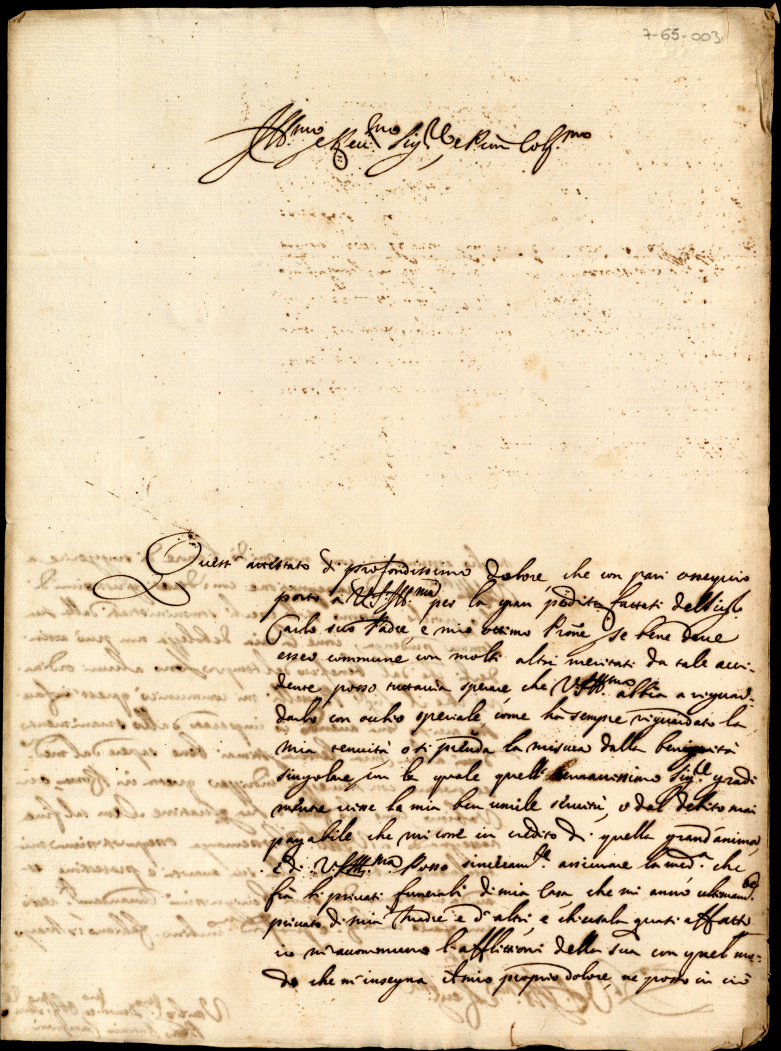 7-65-003
Ill.mo e Reu.mo Sig.re e Pron Col.mo
Quest' attestato di profondissimo dolore, che con pari ossequio
porto à V.S. Ill.ma per la gran perdita fattasi del Sig.r
Carlo suo Padre, e mio ottimo Prone, se bene deue
esser commune con molti altri meritati da tale acci-
dente, posso tuttauia sperare, che V.S. Ill.ma abbia a riguar-
darlo con occhio speciale, come hà sempre riguardato la
mia tenuità, o si prenda la misura dalla benignità
singolare, con la quale quell' Sig.re gradi
mente uisse la mia ben umile seruitù, o dal debito mai
pagabile che mi corre in credito di quella grand'anima,
e di V.S. Ill.ma. Posso sinceram.te assicurare la med.a che
frà li priuati funerali di mia Casa, che mi anno ultimam.te
priuato di mia Madre e d'altri, e quasi affatto
io l'afflittioni della sua con quel mo-
do che m'insegna il mio proprio dolore, ne posso in ciò